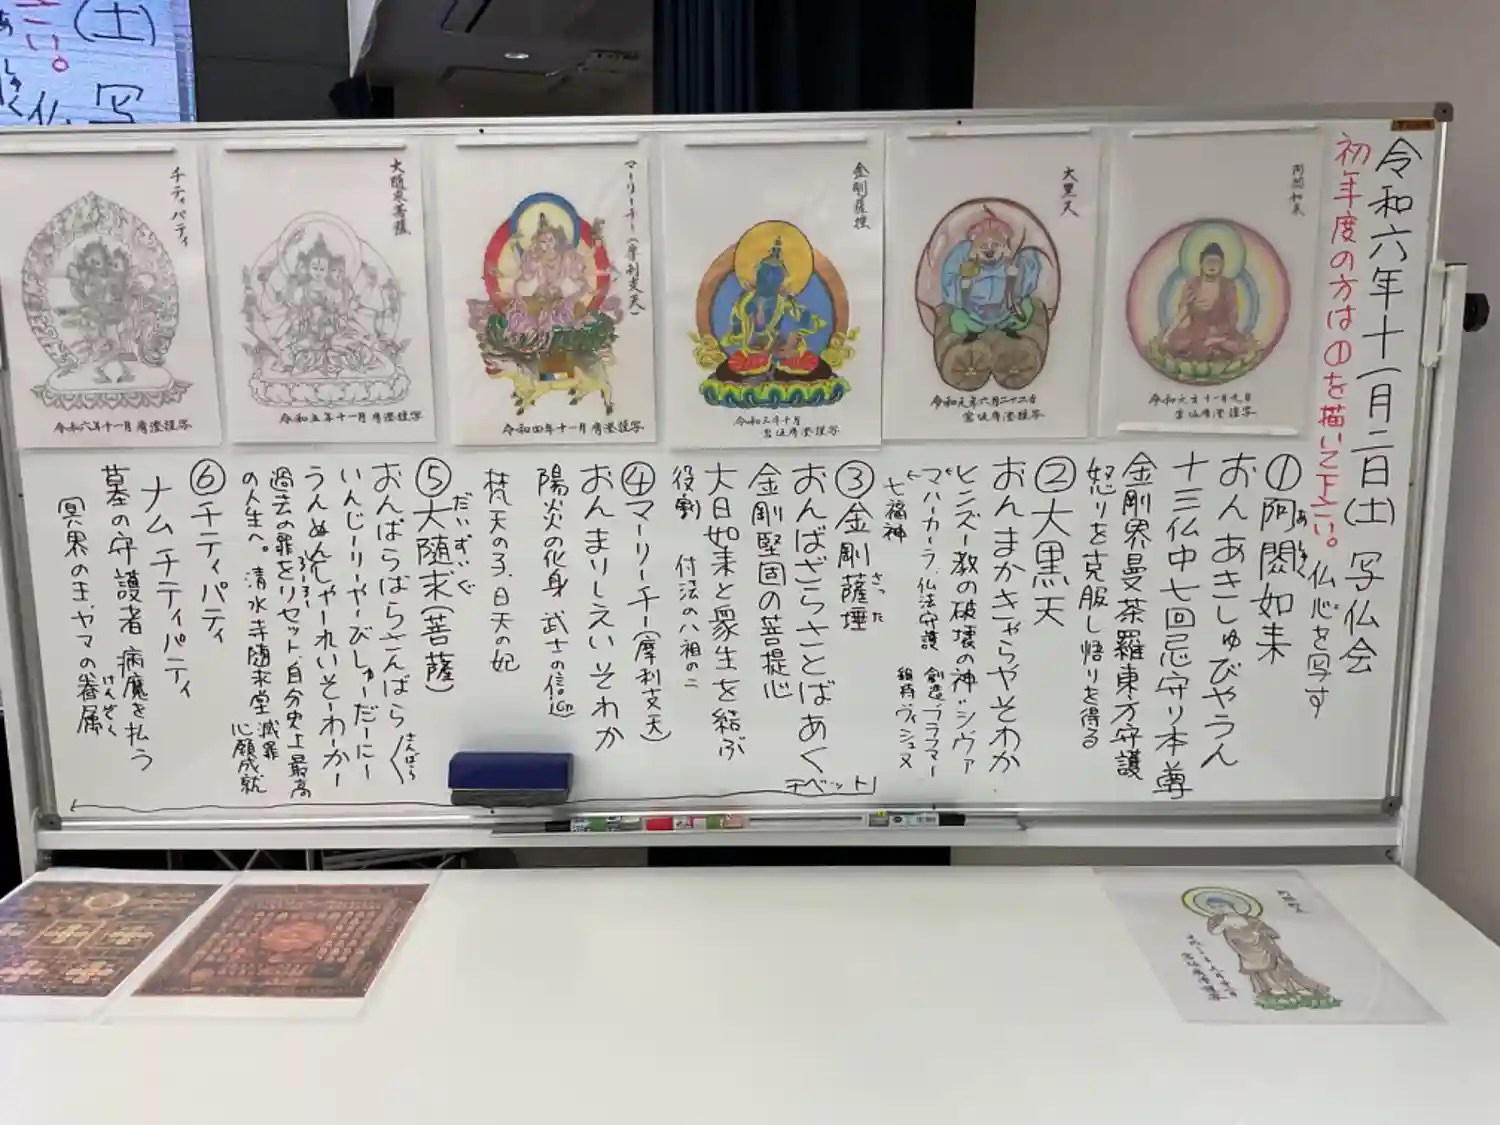 令和六年十一月二日(土) 写仏会
初年度の方は①を描いて下さい。
仏心を写す
①阿閦如来
おんあきしゅびやうん
十三仏中七回忌守り本尊
金剛界曼荼羅東方守護
怒りを克服し悟りを得る
②大黒天
おんまかきゃらやそわか
ヒンズー教の破壊の神"シヴァ
マハーカーラ、仏法守護 創造ブラフマー
七福神 維持ヴィシュヌ
③金剛薩埵
さった
おんばざらさとばあく
チベット
金剛堅固の菩提心
大日如来と衆生を結ぶ
役割 付法の八祖の二
④マーリーチー(摩利支天)
おんまりしえいそわか
陽炎の化身 武士の信仰
梵天の子、日天の妃
⑤大随求(菩薩)
だいずいぐ
おんばらばらさんばら
さんばら
いんじーりーやーびしゅーだーにー
うんぬんしゃーれいそーわーかー
過去の罪をリセット、自分史上最高
の人生へ。清水寺随求堂 滅罪
心願成就
⑥チティパティ
ナム チティパティ
墓の守護者 病魔を払う
冥界の王、ヤマの眷属
けんぞく
阿閦如来
令和元年十一月九日
大黒天
令和元年六月二十二日
金剛薩埵
令和三年十月
マーリーチー(摩利支天)
令和四年十一月 廣澄謹写
大随求菩薩
令和五年十一月 廣澄謹写
チティパティ
令和六年十一月 廣澄謹写
(土) 写